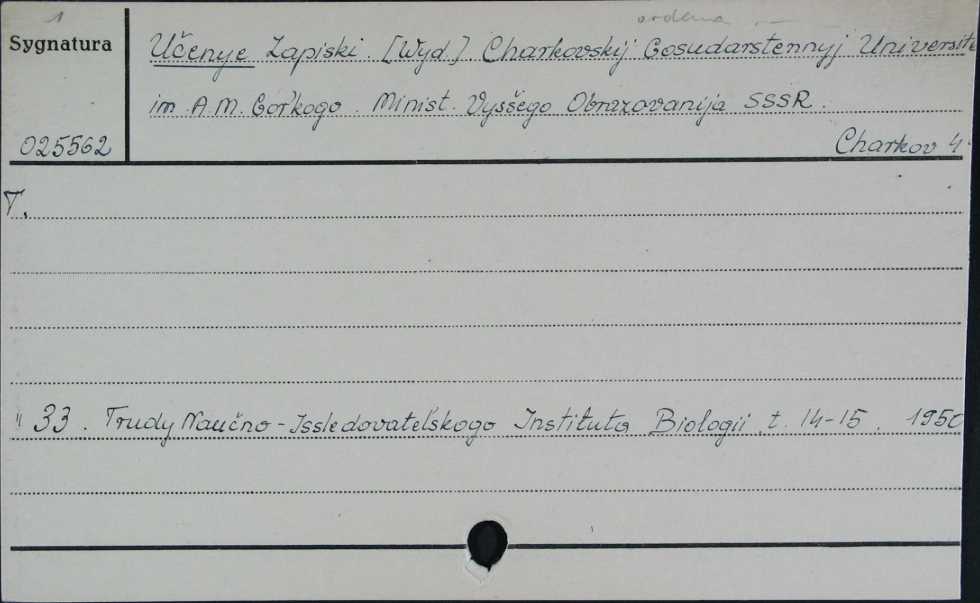 1
ordena
Sygnatura
Učenye Zapiski. [Wyd.]. Charkovskij Gosudarstennyj Universite
im A.M. Gor'kogo. Minist. Vysšego Obrazovanija SSSR.
025562
Charkov 4
T.
" 33. Trudy Naučno-Issledovatel'skogo Instituta Biologii t. 14-15. 1950